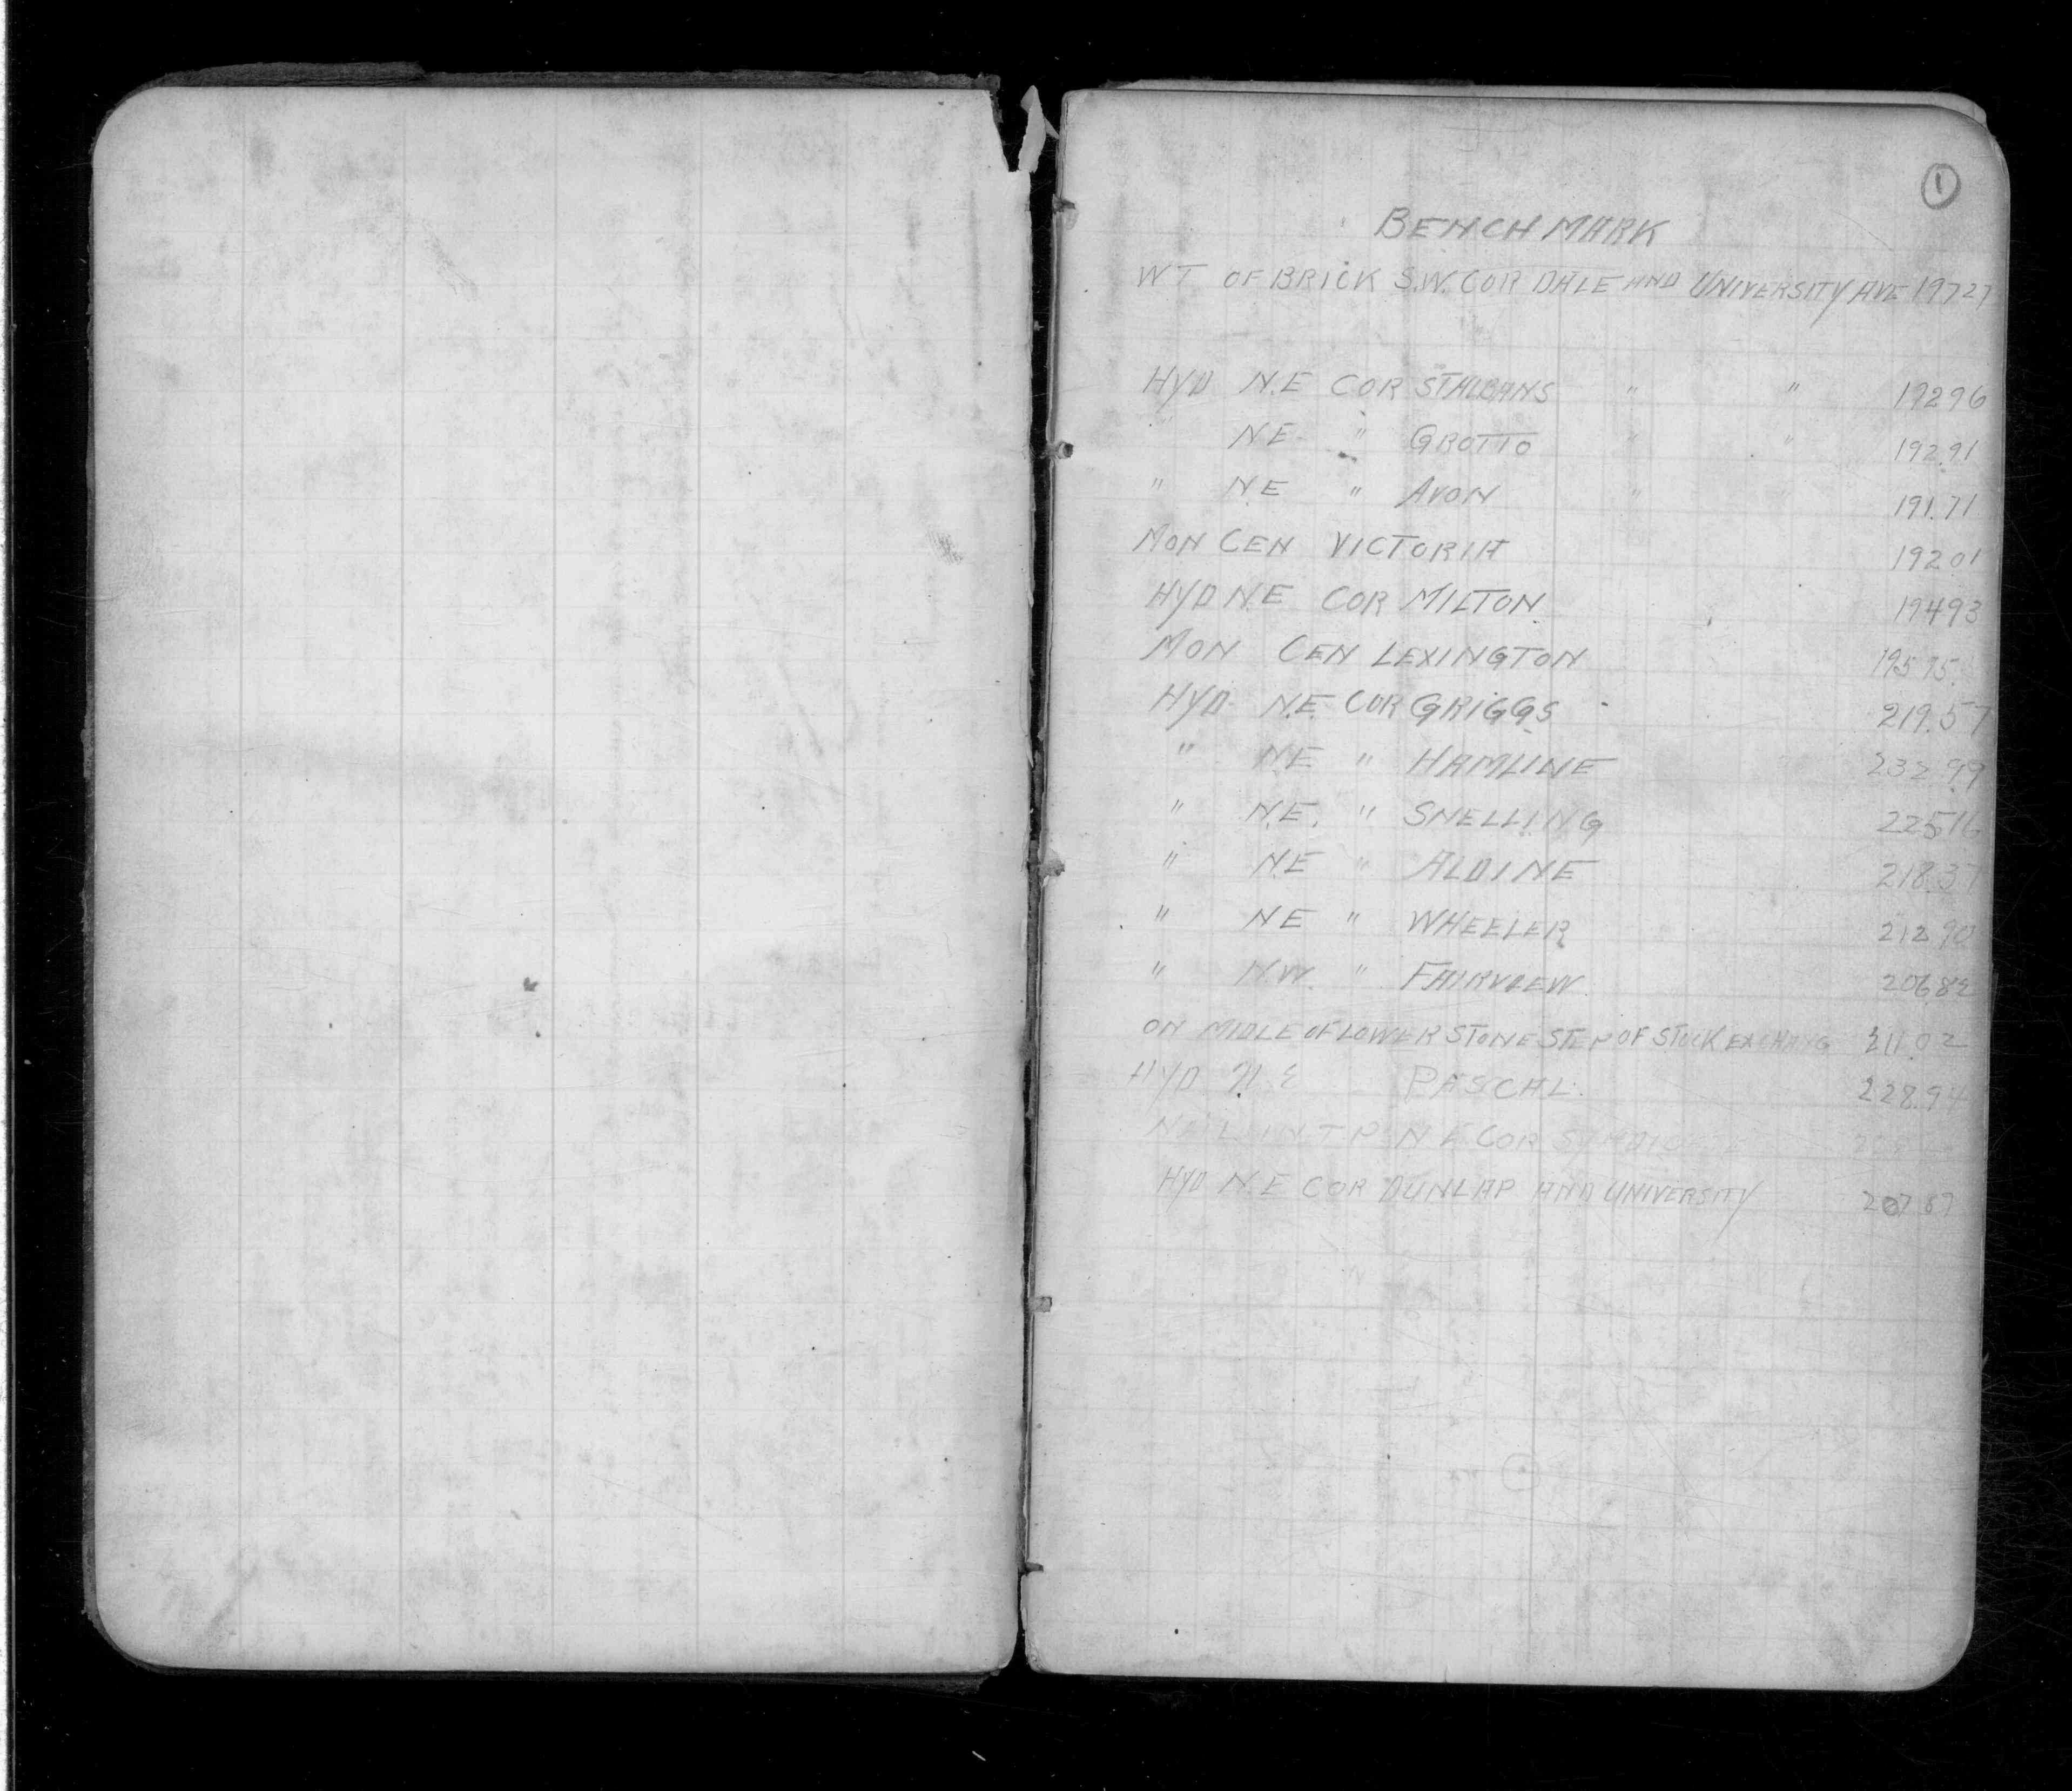 1
BENCH MARK
WT OF BRICK S.W. COR DALE AND UNIVERSITY AVE 197 27
HYD N.E COR ST ALBANS " " 192 96
" N.E " GROTTO " " 192.91
" N.E " AVON " " 191.71
MON CEN VICTORIA 192 01
HYD N.E COR MILTON 194 93
MON CEN LEXINGTON 195 75
HYD N.E. COR GRIGGS 219.57
" N.E " HAMLINE 232 99
" N.E. " SNELLING 225 16
" N.E " ALDINE 218.37
" N.E " WHEELER 212 90
" N.W. " FAIRVIEW 206 82
ON MIDLE OF LOWER STONE STEP OF STOCK EXCHANG 211.02
HYD N E PASCAL 228.94
N E COR
HYD N.E COR DUNLAP AND UNIVERSITY 207 67